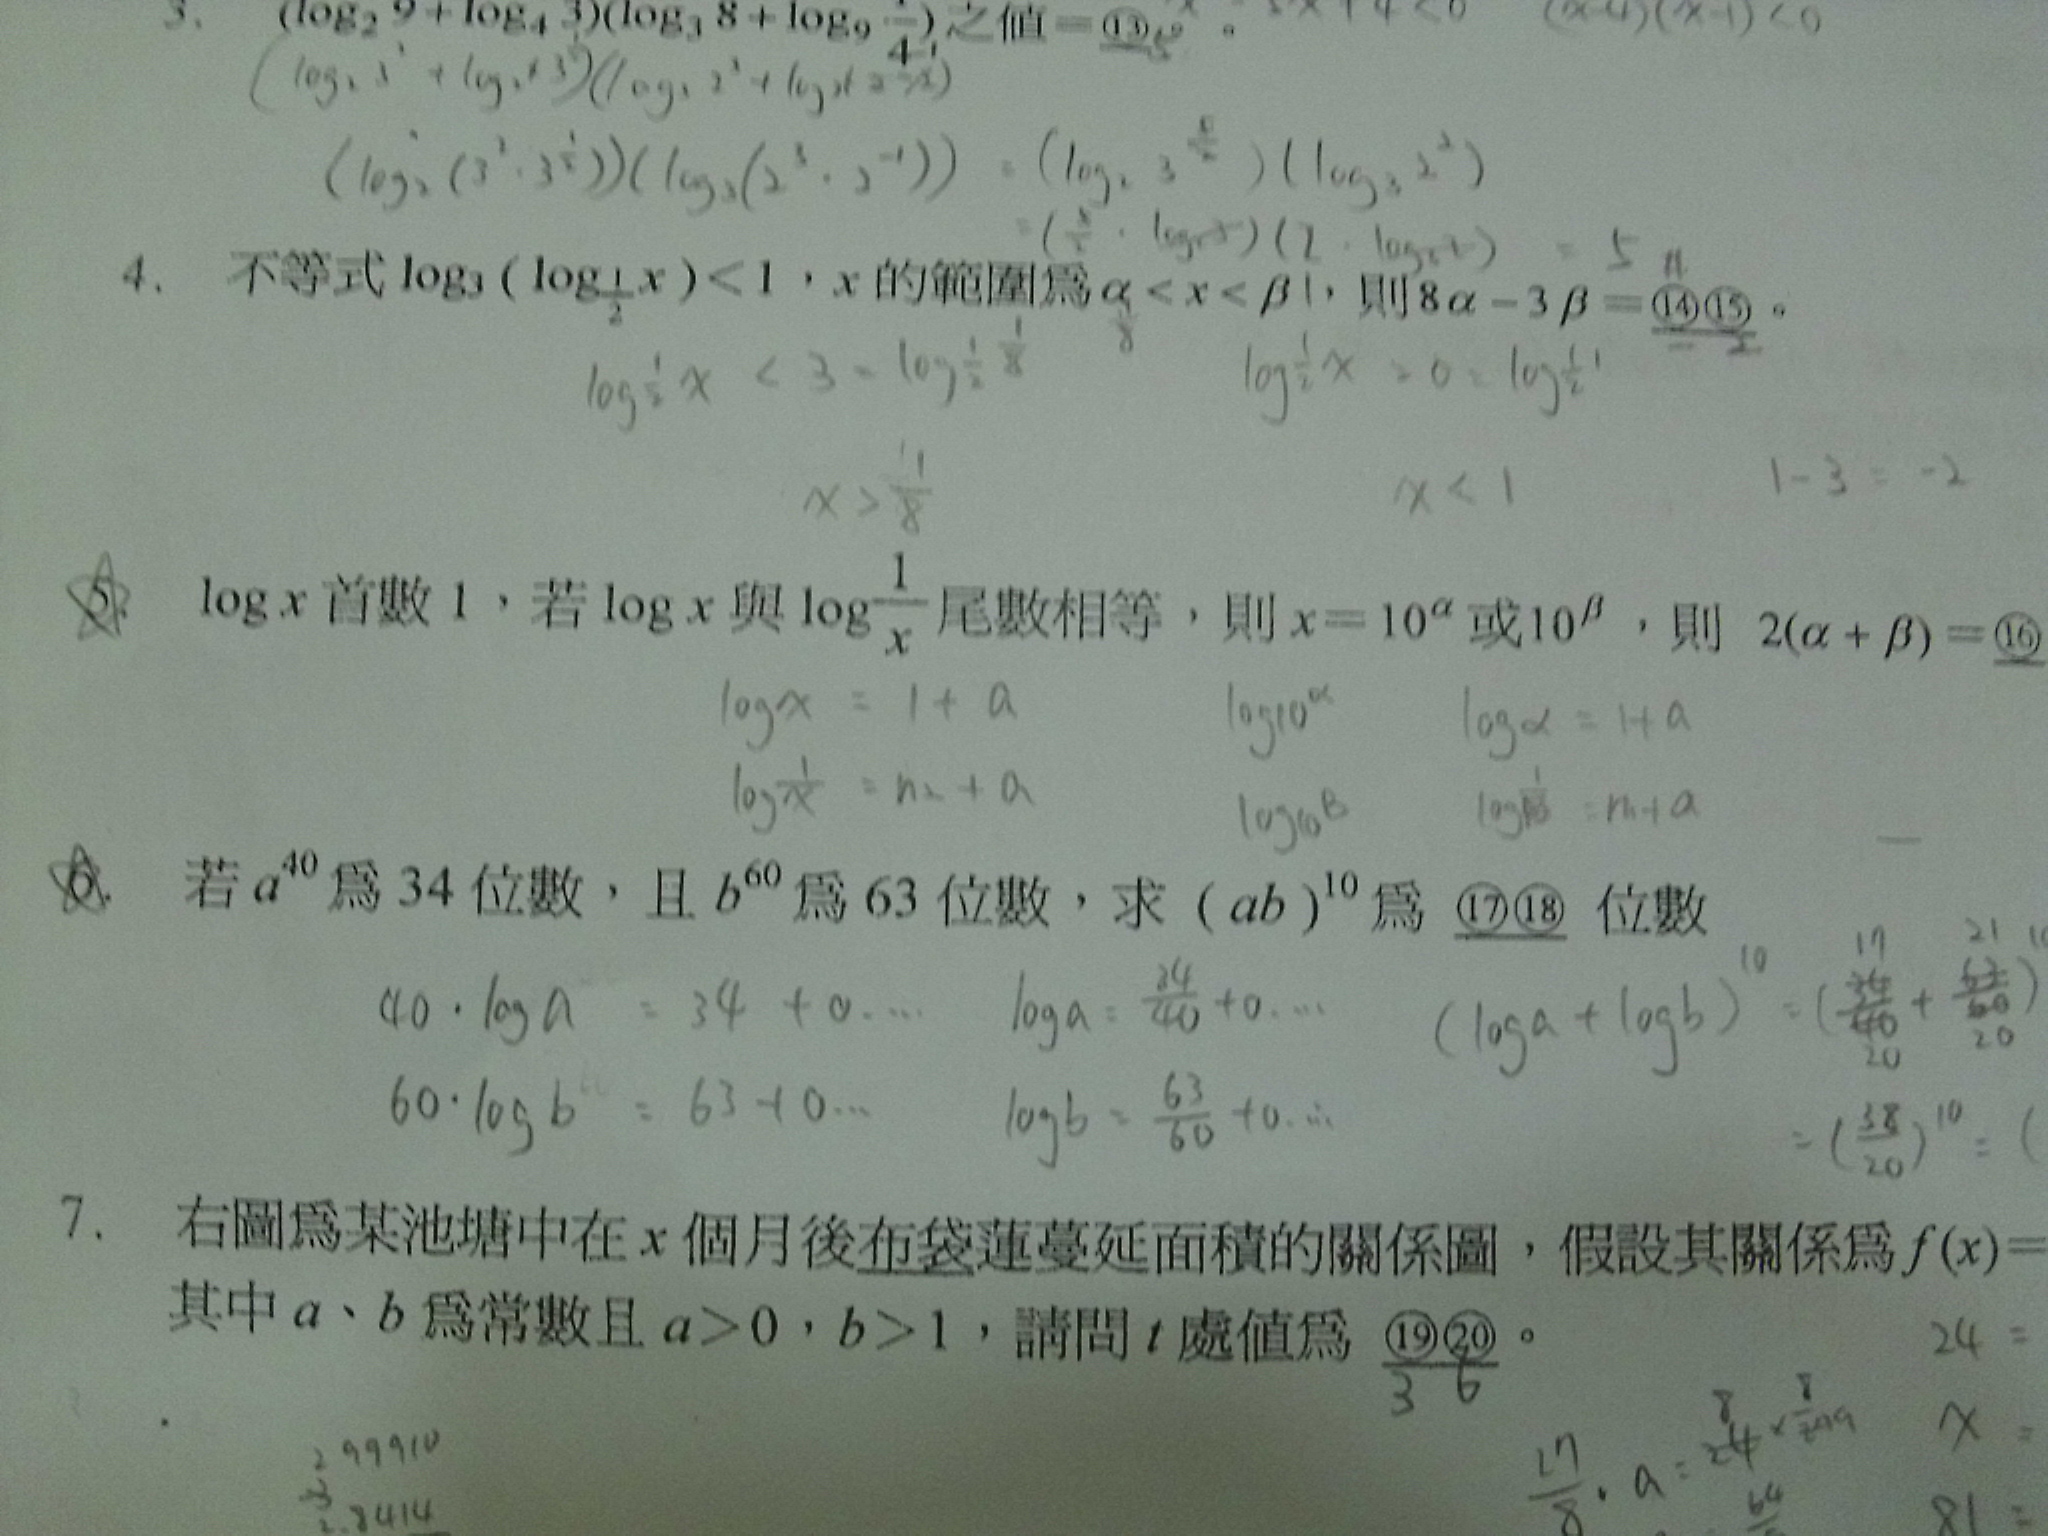 3. (log₂ 9 + log₄ 3)(log₃ 8 + log₉ 1/4) 之值 = ⑬ 。 (x-4)(x-1)<0
(log₂(3²·3^{1/2}))(log₃(2³·2⁻¹)) = (log₂ 3^{5/2})(log₃ 2²)
= 5
4. 不等式 log₃ ( log_{1/2} x ) < 1，x 的範圍為 α < x < β，則 8α - 3β = ⑭⑮ 。
1/8 1 - 2
log_{1/2} x < 3 = log_{1/2} 1/8 log_{1/2} x > 0 = log_{1/2} 1
x > 1/8 x < 1 1 - 3 = -2
5. log x 首數 1，若 log x 與 log 1/x 尾數相等，則 x = 10^α 或 10^β，則 2(α + β) = ⑯
log x = 1 + a log10^α logα = 1+a
log 1/x = m + a log10^β = m+a
6. 若 a⁴⁰ 為 34 位數，且 b⁶⁰ 為 63 位數，求 ( ab )¹⁰ 為 ⑰⑱ 位數
40·log a = 34 + 0.... log a = 34/40 + 0.... (log a + log b)¹⁰ = (34/40 + 63/60)
17 20 21 20
60·log b = 63 + 0... log b = 63/60 + 0.... = (38/20)¹⁰ = (
7. 右圖為某池塘中在 x 個月後布袋蓮蔓延面積的關係圖，假設其關係為 f (x) =
其中 a、b 為常數且 a > 0，b > 1，請問 t 處值為 ⑲⑳ 。
3 6
24 =
x =
27/8 · a =
81 =
99910
2.8414